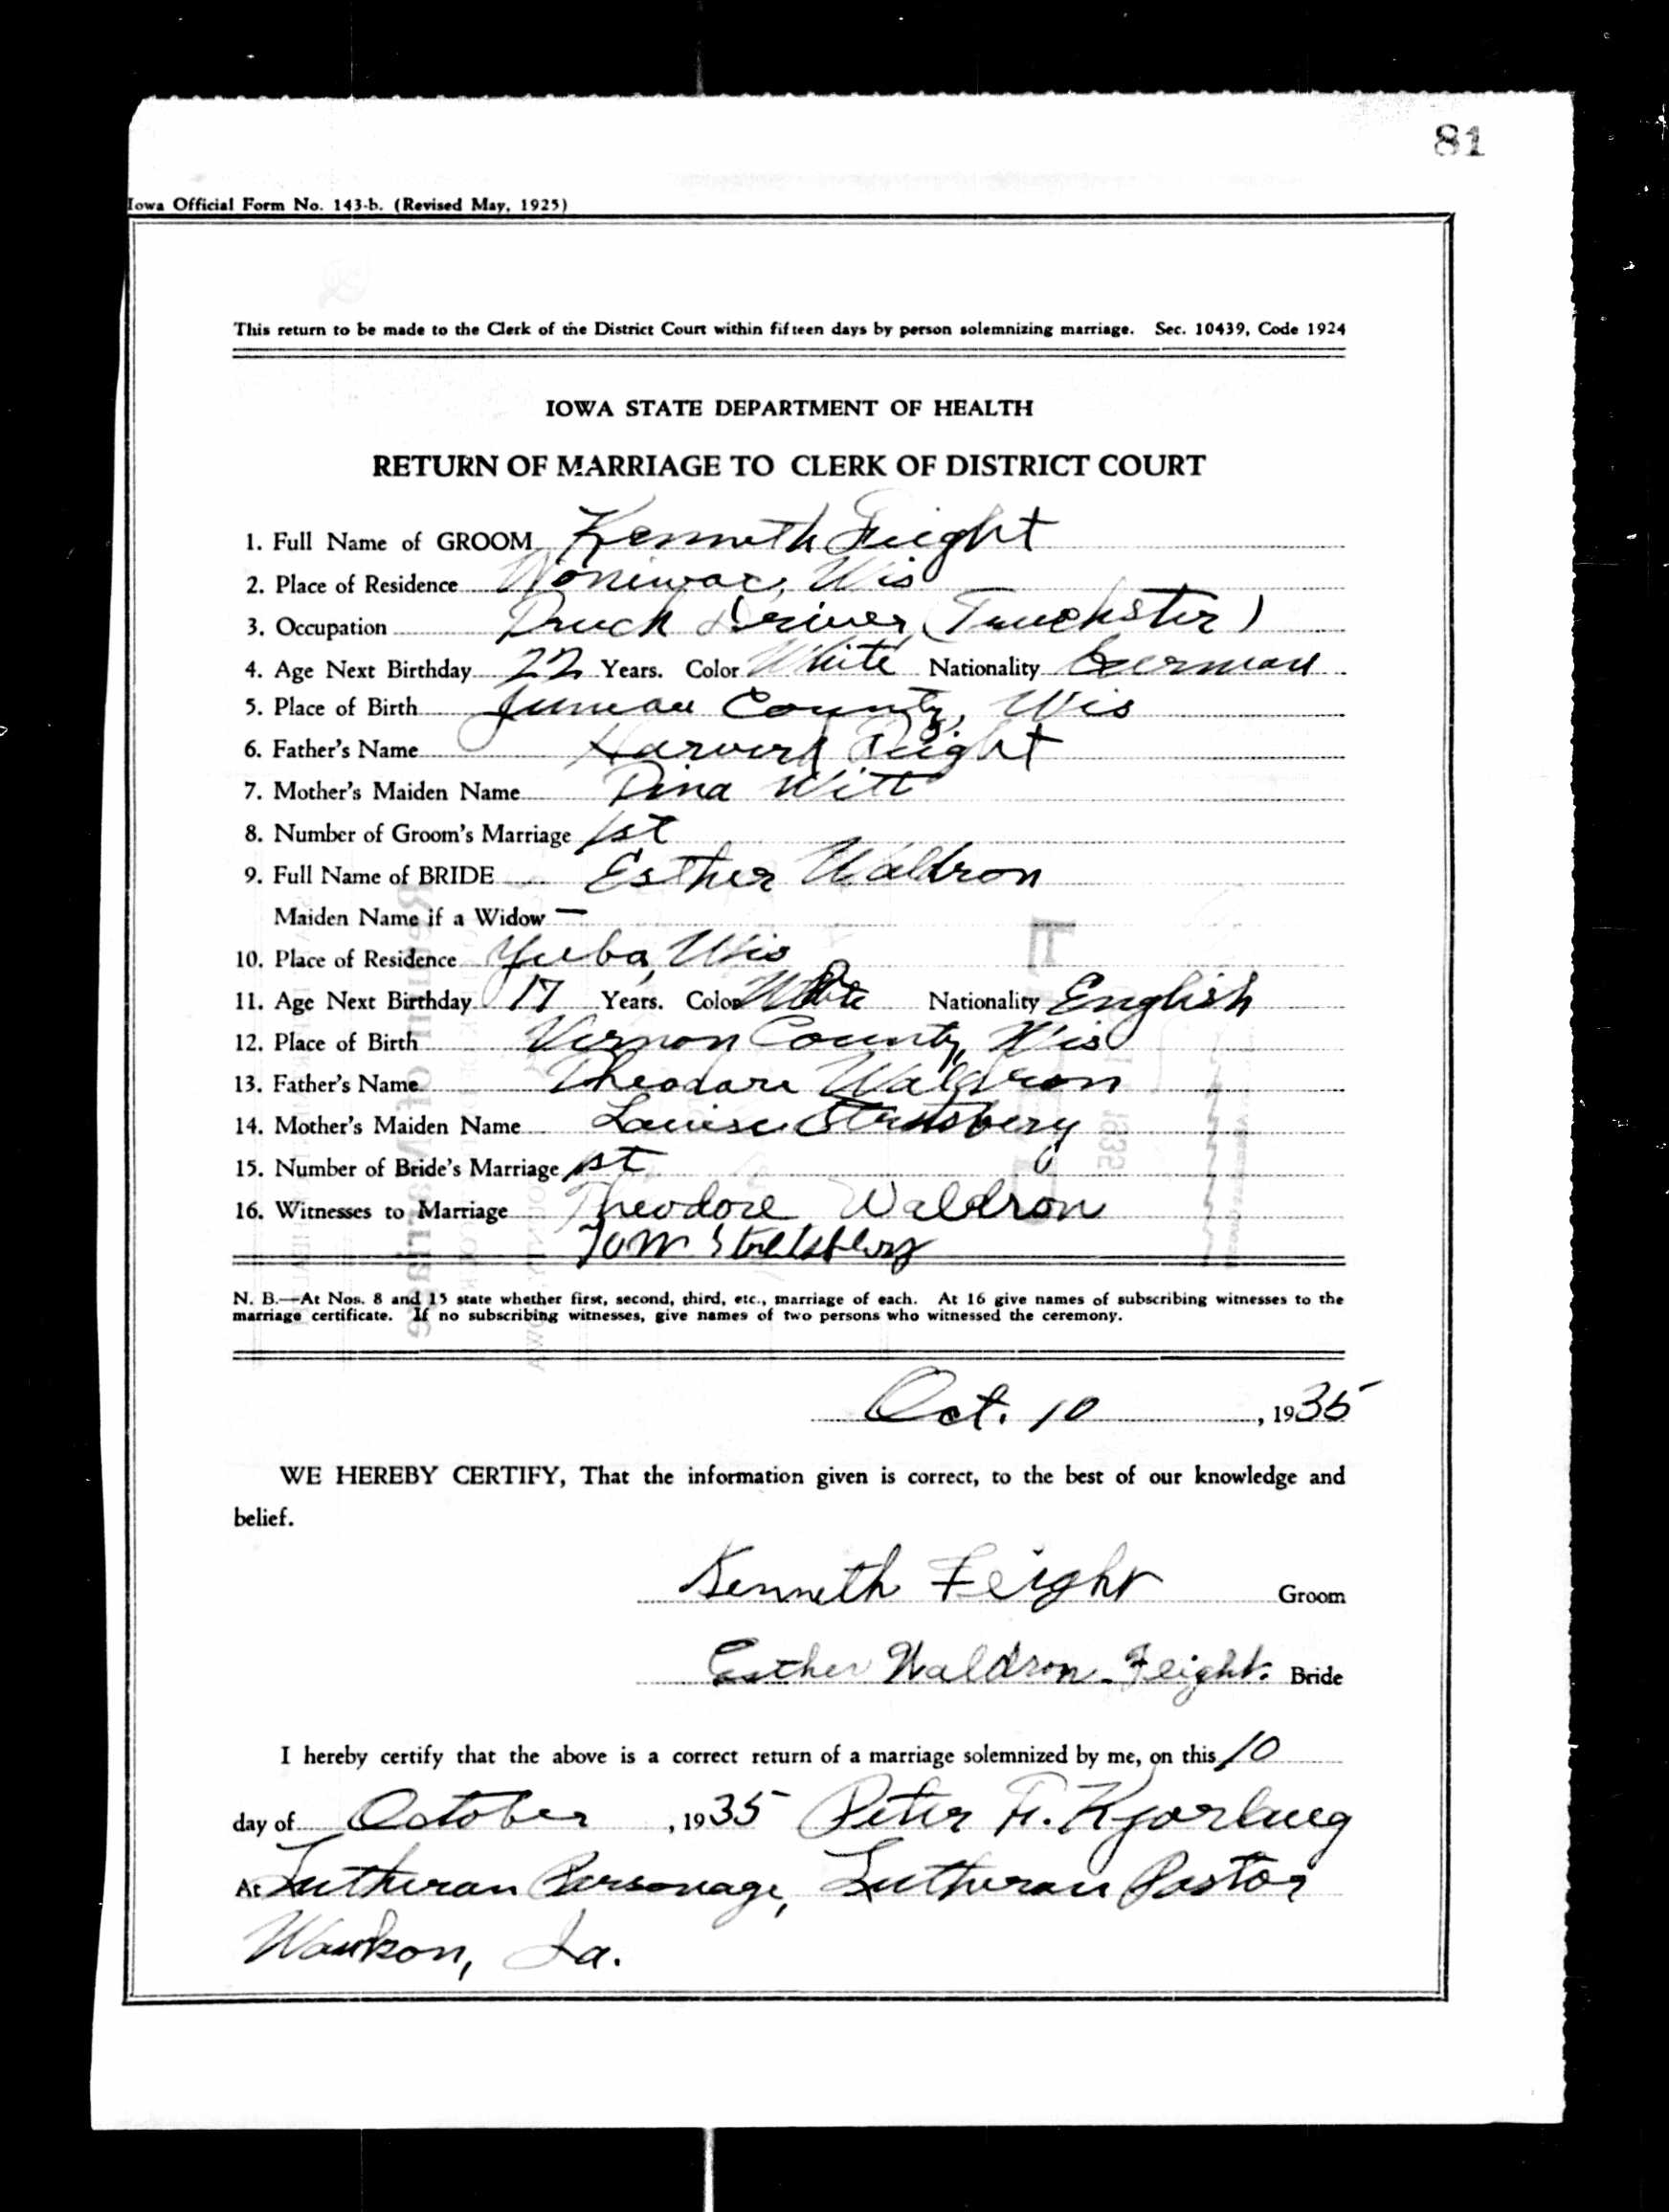 81
Iowa Official Form No. 143-b. (Revised May, 1925)
This return to be made to the Clerk of the District Court within fifteen days by person solemnizing marriage. Sec. 10439, Code 1924
IOWA STATE DEPARTMENT OF HEALTH
RETURN OF MARRIAGE TO CLERK OF DISTRICT COURT
1. Full Name of GROOM Kenneth Feight
2. Place of Residence Wonewoc, Wis
3. Occupation Truck Driver (Truckster)
4. Age Next Birthday 22 Years. Color White Nationality German
5. Place of Birth Juneau County, Wis
6. Father's Name Feight
7. Mother's Maiden Name Dina Witt
8. Number of Groom's Marriage 1st
9. Full Name of BRIDE Esther Waldron
Maiden Name if a Widow —
10. Place of Residence Yuba, Wis
11. Age Next Birthday 17 Years. Color White Nationality English
12. Place of Birth Vernon County, Wis
13. Father's Name Theodore Waldron
14. Mother's Maiden Name Louise
15. Number of Bride's Marriage 1st
16. Witnesses to Marriage Theodore Waldron
Tom
N. B.—At Nos. 8 and 15 state whether first, second, third, etc., marriage of each. At 16 give names of subscribing witnesses to the
marriage certificate. If no subscribing witnesses, give names of two persons who witnessed the ceremony.
Oct. 10, 1935
WE HEREBY CERTIFY, That the information given is correct, to the best of our knowledge and
belief.
Kenneth Feight Groom
Esther Waldron-Feight. Bride
I hereby certify that the above is a correct return of a marriage solemnized by me, on this 10
day of October, 1935 Peter
At Lutheran Parsonage, Lutheran Pastor
Waukon, Ia.